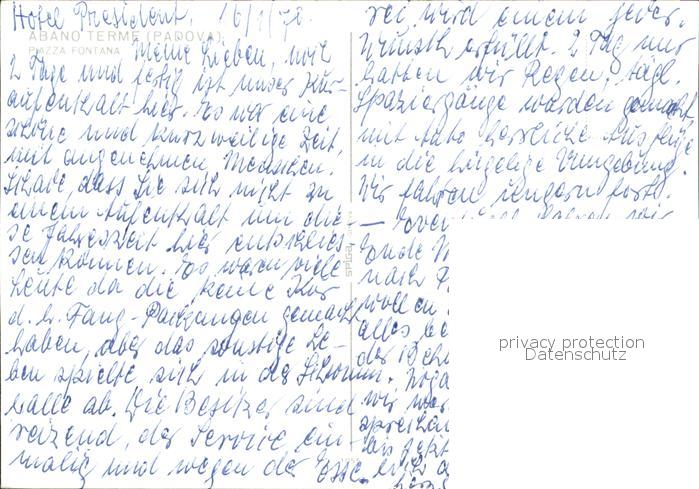 Hotel President, 16/1/70.
ABANO TERME (PADOVA)
PIAZZA FONTANA
Meine Lieben, noch
2 Tage und fertig ist unser Kur-
aufenthalt hier. Es war eine
schöne und kurzweilige Zeit,
mit angenehmen Menschen.
Schade, dass Sie sich nicht zu
einem Aufenthalt um die-
se Jahreszeit hier entschlies-
sen können. Es waren viele
Leute da die keine Kur
d. h. Fango-Packungen gemacht
haben, aber das sonstige Le-
ben spielte sich in der Schwimm-
halle ab. Die Besitzer sind
reizend, der Service ein-
malig und wegen der Esse-
rei wird einem jeder
Wunsch erfüllt. 2 Tag nur
hatten wir Regen, tägl.
Spaziergänge wurden gemacht
mit Auto herrliche Ausflüge
in die hügelige Umgebung.
Wir fahren ungern fort.
Ende
nach
wollen
alles
der
wir
privacy protection
Datenschutz